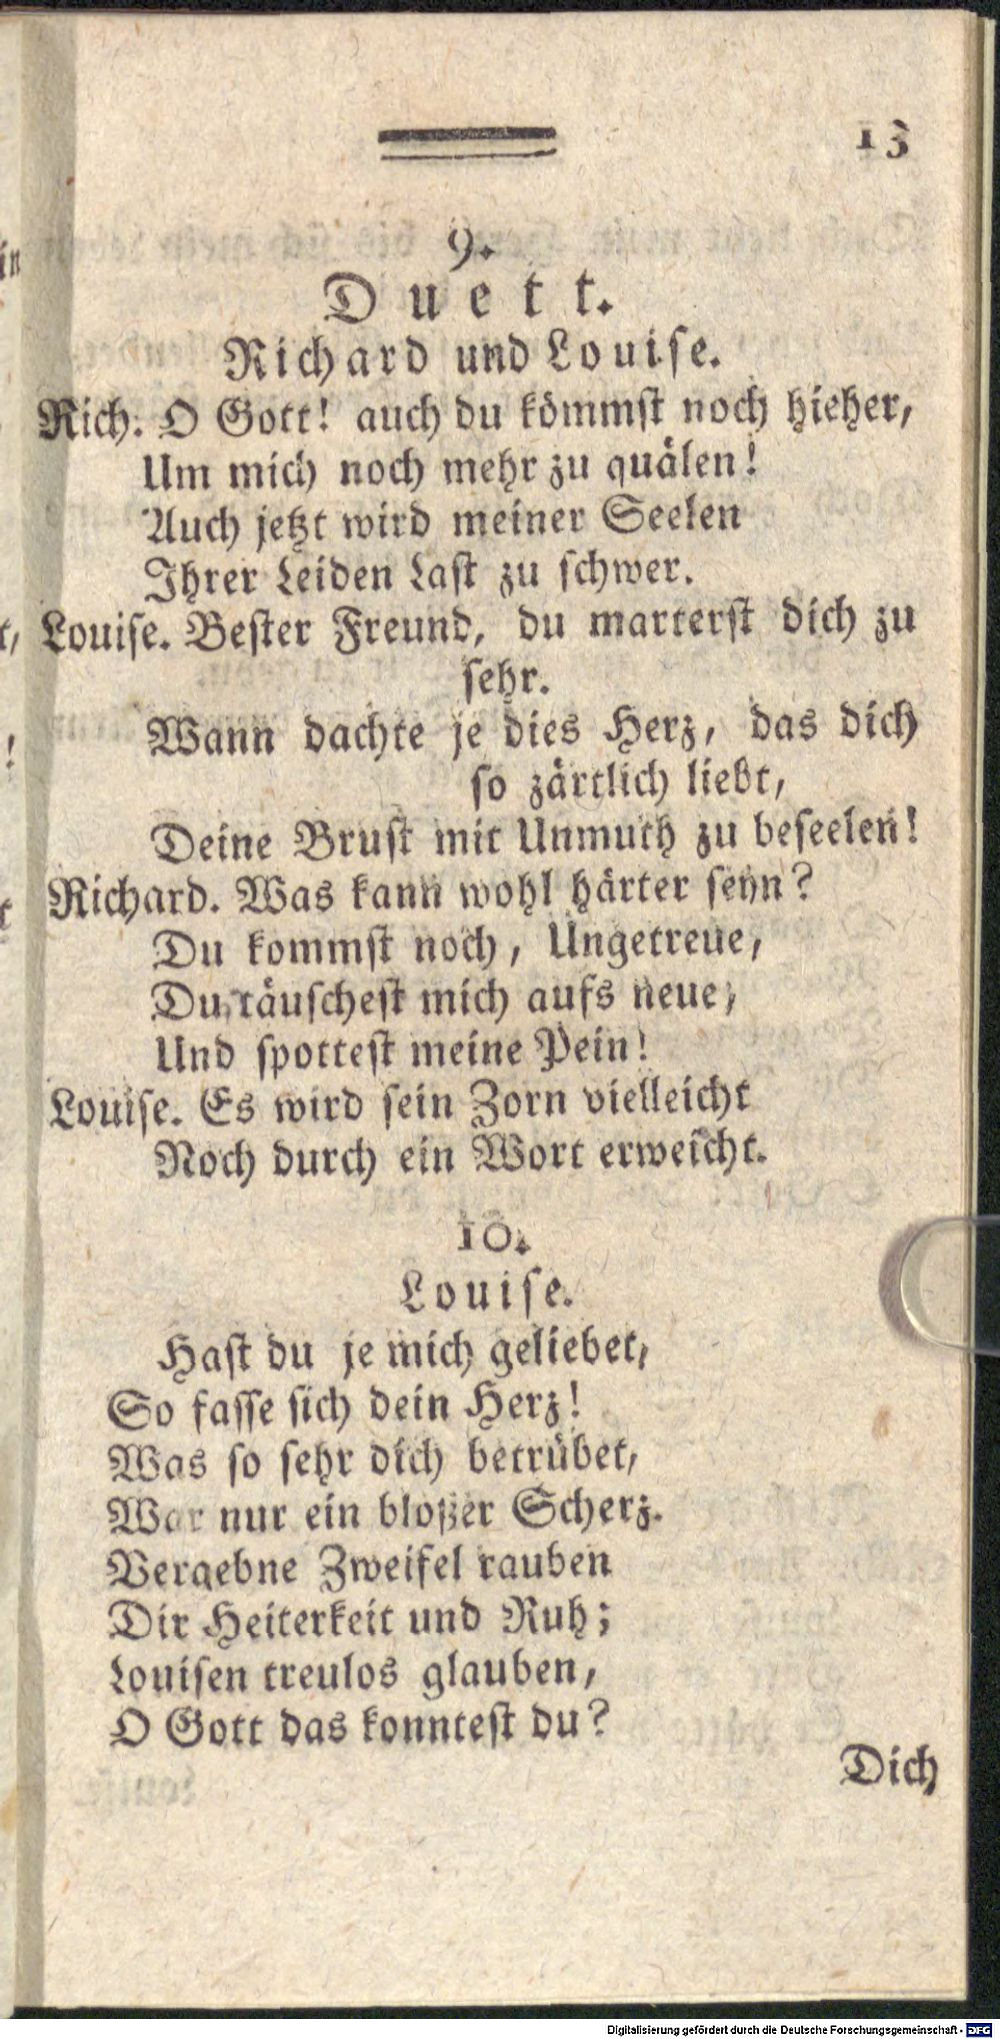 13
9.
Duett.
Richard und Louise.
Rich. O Gott! auch du kömmst noch hieher,
Um mich noch mehr zu quälen!
Auch jetzt wird meiner Seelen
Ihrer Leiden Last zu schwer.
Louise. Bester Freund, du marterst dich zu
sehr.
Wann dachte je dies Herz, das dich
so zärtlich liebt,
Deine Brust mit Unmuth zu beseelen!
Richard. Was kann wohl härter seyn?
Du kommst noch, Ungetreue,
Du täuschest mich aufs neue,
Und spottest meine Pein!
Louise. Es wird sein Zorn vielleicht
Noch durch ein Wort erweicht.
10.
Louise.
Hast du je mich geliebet,
So fasse sich dein Herz!
Was so sehr dich betrübet,
War nur ein bloßer Scherz.
Vergebne Zweifel rauben
Dir Heiterkeit und Ruh;
Louisen treulos glauben,
O Gott das konntest du?
Dich
Digitalisierung gefördert durch die Deutsche Forschungsgemeinschaft - DFG